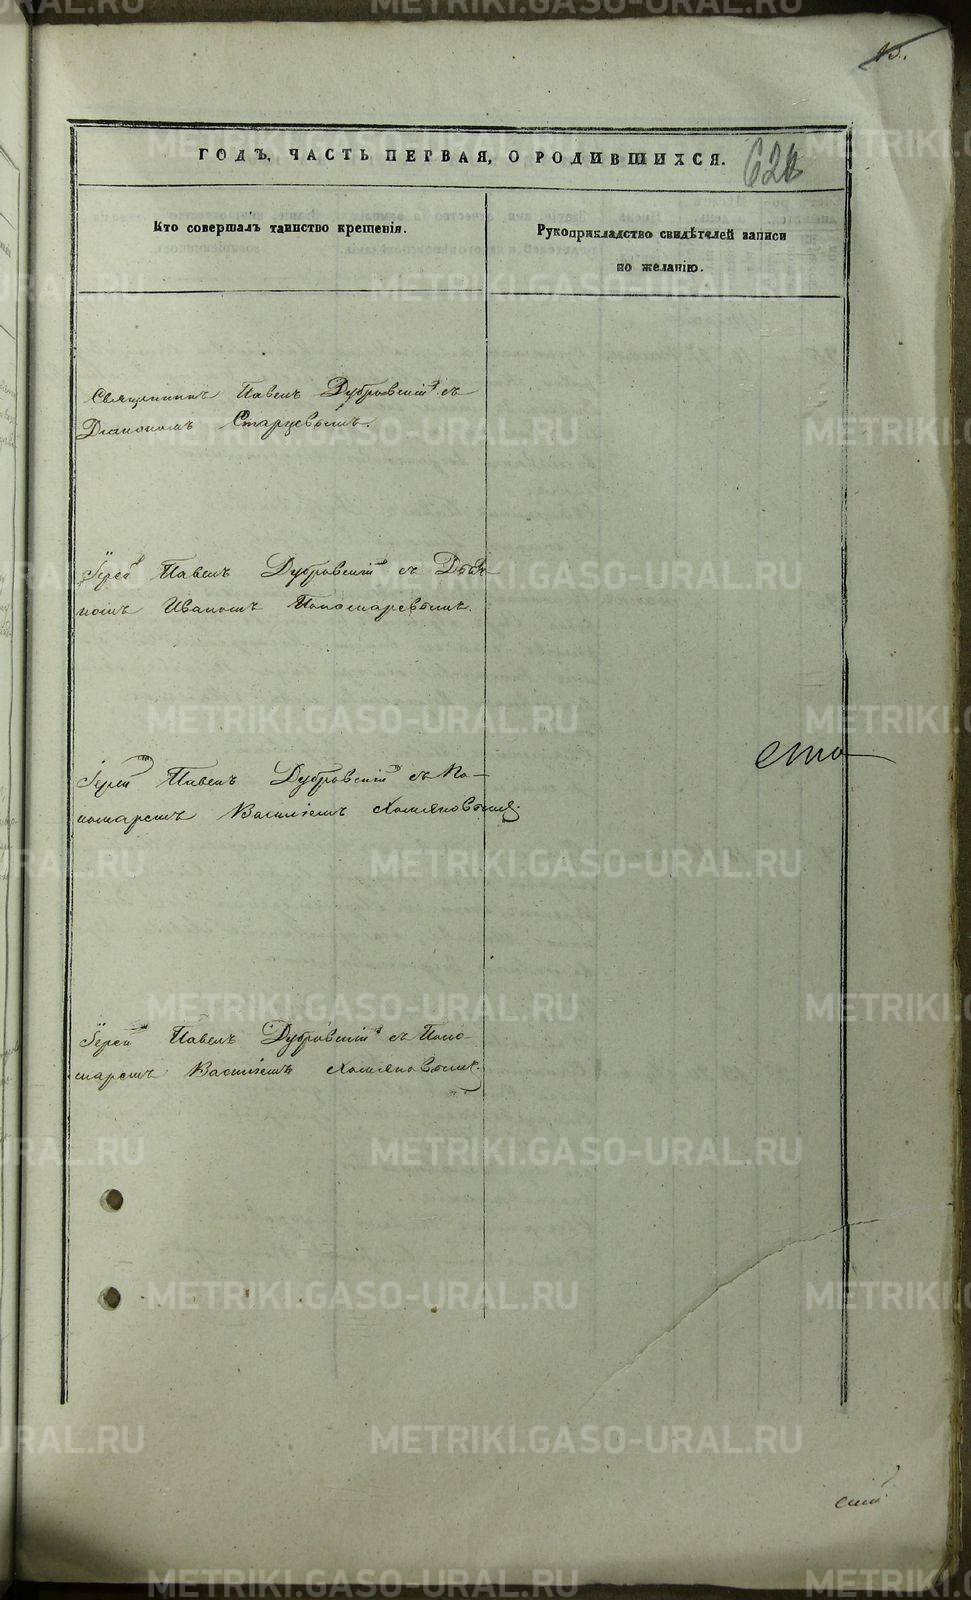 13.
ГОДЪ, ЧАСТЬ ПЕРВАЯ, О РОДИВШИХСЯ.
Кто совершалъ таинство крещенія.
Рукоприкладство свидѣтелей записи
по желанію.
Священникъ Павелъ Дубровскій съ
Діакономъ Старцевымъ.
Іерей Павелъ Дубровскій съ Дьяч
комъ Иваномъ Пономаревымъ.
Іерей Павелъ Дубровскій съ По-
номаремъ Василіемъ Хомяковымъ.
Іерей Павелъ Дубровскій съ Поно-
маремъ Василіемъ Хомяковымъ.
METRIKI.GASO-URAL.RU